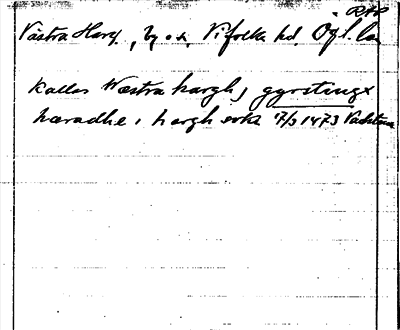 Västra Harg, by o. s., Vifolka hd. Ög l.
kallas Wæstra hargh, gyrstinge
hæradhe i hargh sokn 7/3 1473 Vadstena